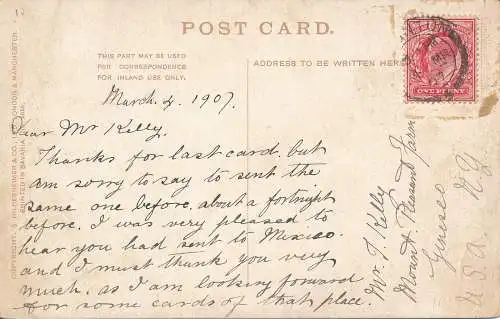 POST CARD.
THIS PART MAY BE USED
FOR CORRESPONDENCE
FOR INLAND USE ONLY.
ADDRESS TO BE WRITTEN HERE
ONE PENNY
March 4. 1907.
Dear Mr Kelly.
Thanks for last card. but
am sorry to say to sent the
same one before, about a fortnight
before. I was very pleased to
hear you had sent to Mexico.
and I must thank you very
much. as I am looking forward
for some cards of that place.
Mr. T. Kelly
Mount Pleasant Farm
Geneseo N.Y.
U.S.A.
COPYRIGHT. S. HILDESHEIMER & CO., LONDON & MANCHESTER.
PRINTED IN BAVARIA